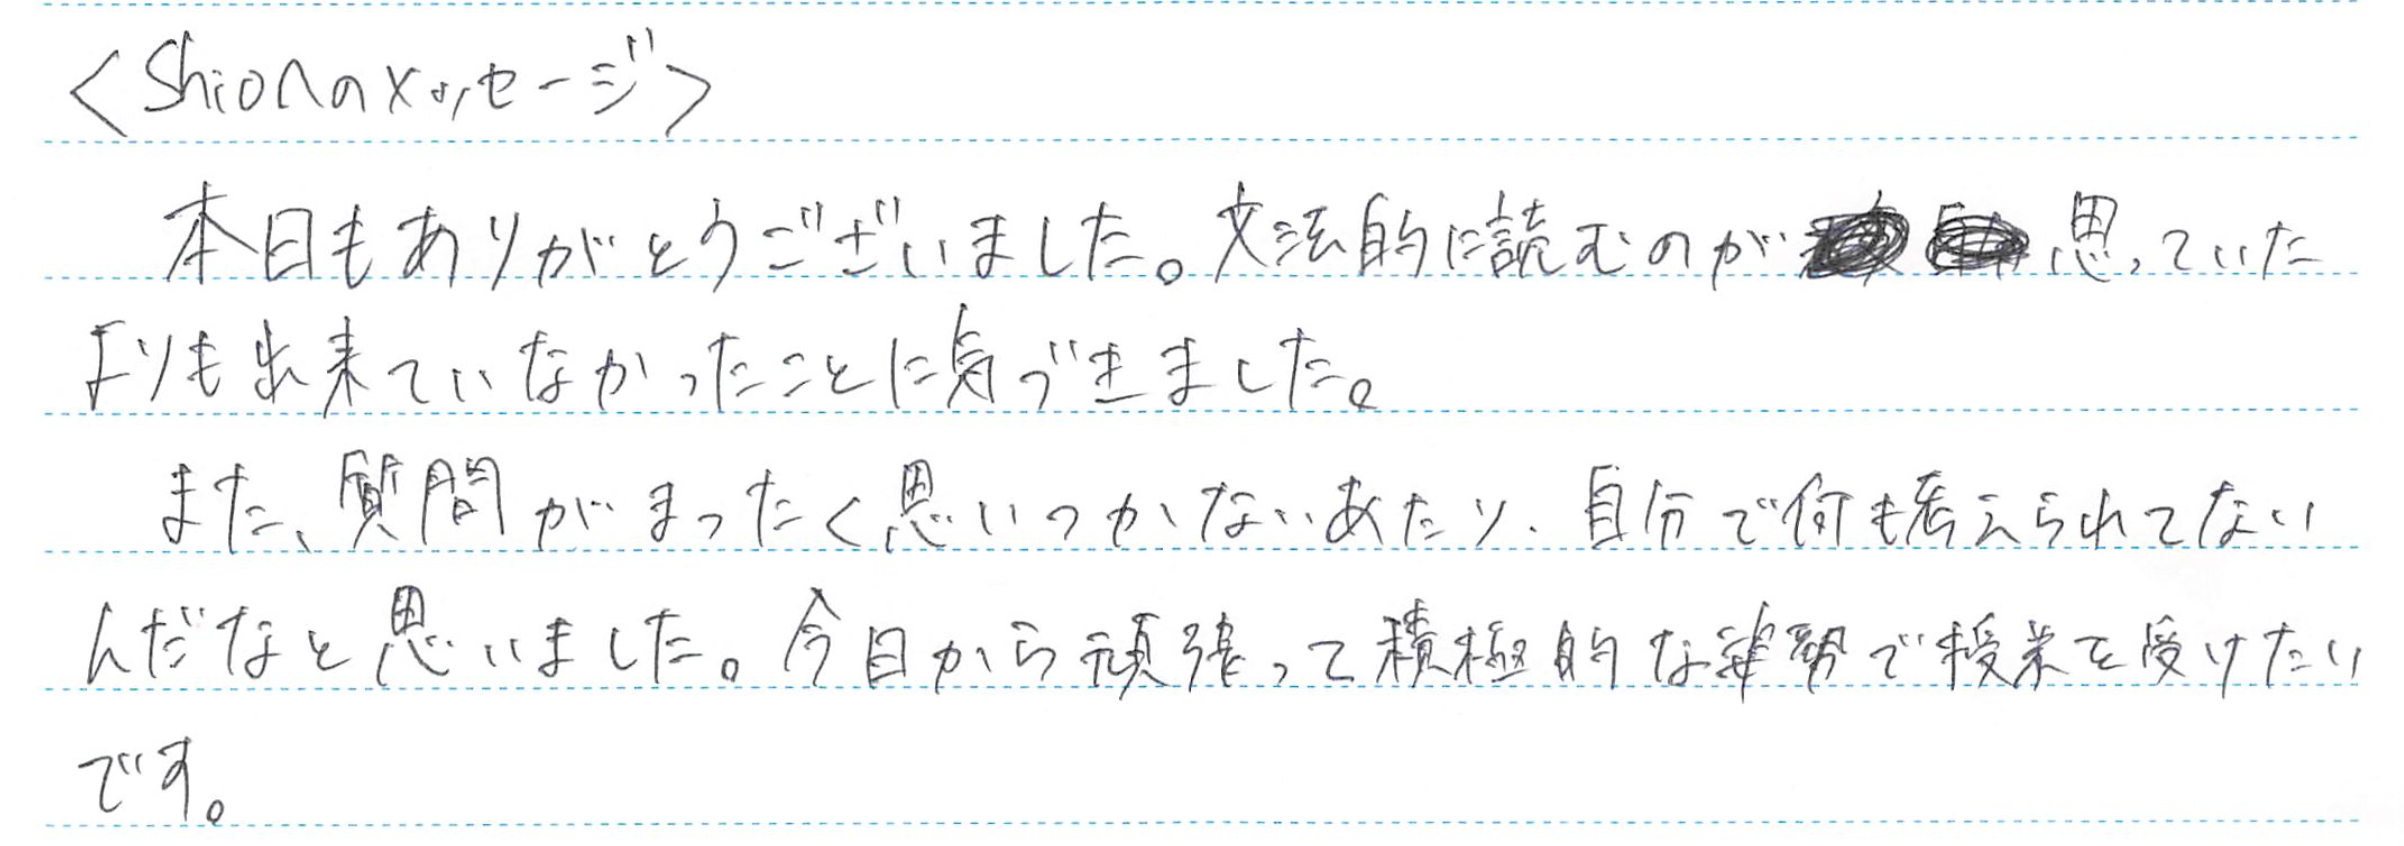 <Shioへのメッセージ>
本日もありがとうございました。文法的に読むのが思っていた
よりも出来ていなかったことに気づきました。
また、質問がまったく思いつかないあたり、自分で何も考えられてない
んだなと思いました。今日から頑張って積極的な姿勢で授業を受けたい
です。